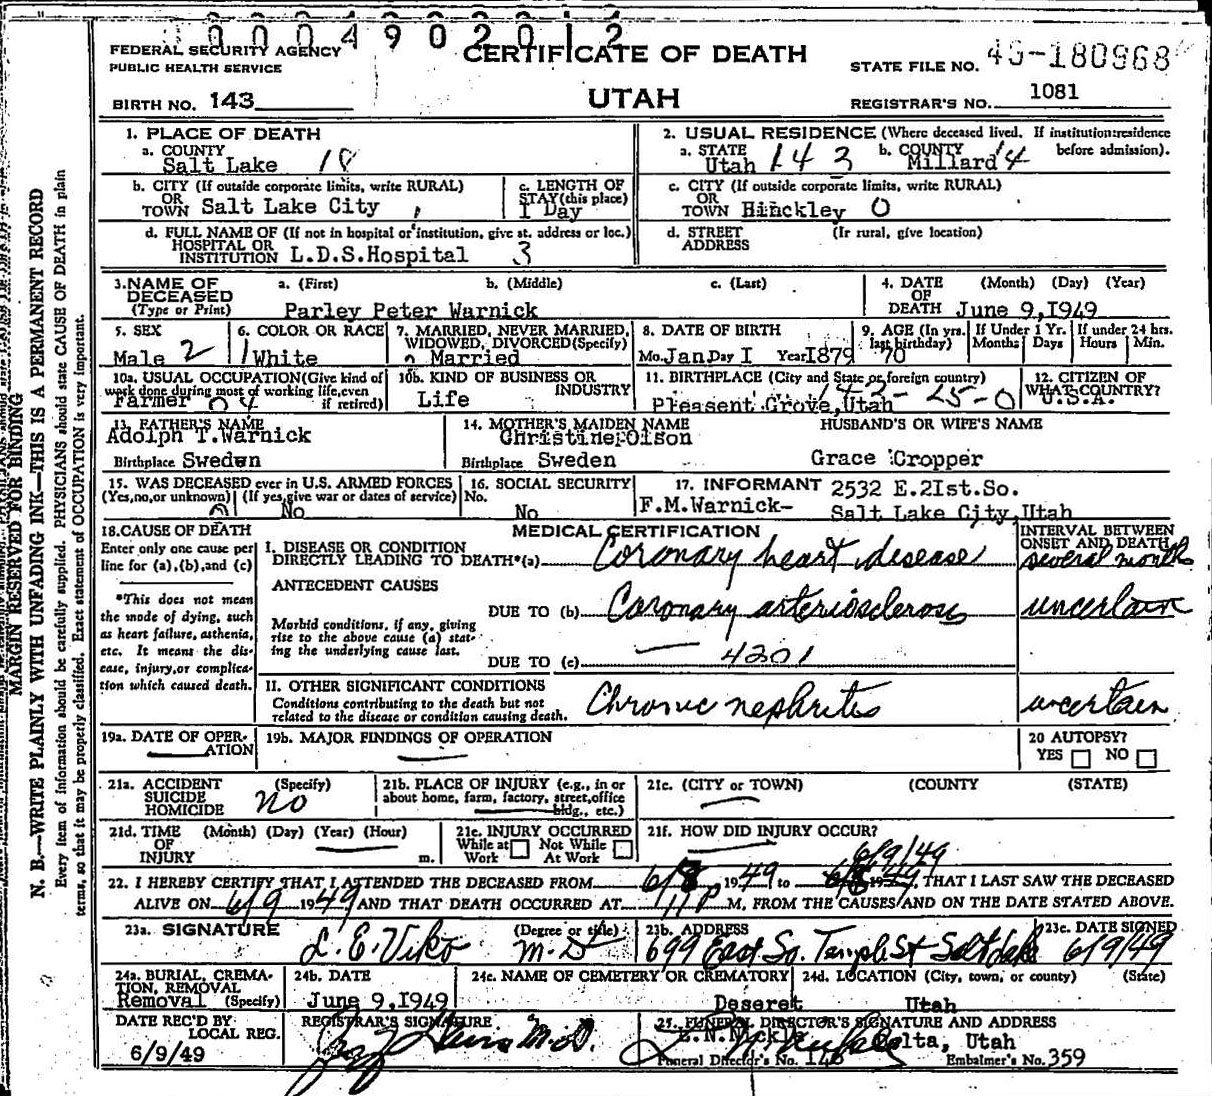 0004902012
FEDERAL SECURITY AGENCY
PUBLIC HEALTH SERVICE
CERTIFICATE OF DEATH
STATE FILE NO. 49-180968
BIRTH NO. 143
UTAH
REGISTRAR'S NO. 1081
1. PLACE OF DEATH
a. COUNTY
Salt Lake 18
2. USUAL RESIDENCE (Where deceased lived. If institution:residence before admission).
a. STATE b. COUNTY
Utah 143 Millard 14
b. CITY (If outside corporate limits, write RURAL)
OR
TOWN Salt Lake City
c. LENGTH OF
STAY (this place)
I Day
c. CITY (If outside corporate limits, write RURAL)
OR
TOWN Hinckley 0
d. FULL NAME OF (If not in hospital or institution, give st. address or loc.)
HOSPITAL OR
INSTITUTION L.D.S.Hospital 3
d. STREET (If rural, give location)
ADDRESS
3. NAME OF a. (First) b. (Middle) c. (Last)
DECEASED
(Type or Print) Parley Peter Warnick
4. DATE (Month) (Day) (Year)
OF
DEATH June 9,I949
5. SEX
Male 2
6. COLOR OR RACE
1 White
7. MARRIED, NEVER MARRIED,
WIDOWED, DIVORCED(Specify)
2 Married
8. DATE OF BIRTH
Mo. Jan Day I Year I879
9. AGE (In yrs.
last birthday)
70
If Under 1 Yr.
Months Days
If under 24 hrs.
Hours Min.
10a. USUAL OCCUPATION(Give kind of
work done during most of working life,even
if retired)
Farmer 04
10b. KIND OF BUSINESS OR
INDUSTRY
Life
11. BIRTHPLACE (City and State or foreign country)
Pleasent Grove,Utah
12. CITIZEN OF
WHAT COUNTRY?
U.S.A.
13. FATHER'S NAME
Adolph T.Warnick
Birthplace Sweden
14. MOTHER'S MAIDEN NAME
Christine Olson
Birthplace Sweden
HUSBAND'S OR WIFE'S NAME
Grace Cropper
15. WAS DECEASED ever in U.S. ARMED FORCES
(Yes,no,or unknown) (If yes,give war or dates of service)
No
16. SOCIAL SECURITY
No.
No
17. INFORMANT 2532 E.2Ist.So.
F.M.Warnick- Salt Lake City,Utah
18.CAUSE OF DEATH
Enter only one cause per
line for (a),(b),and (c)
*This does not mean
the mode of dying, such
as heart failure, asthenia,
etc. It means the dis-
ease, injury,or complica-
tion which caused death.
MEDICAL CERTIFICATION
INTERVAL BETWEEN
ONSET AND DEATH
I. DISEASE OR CONDITION
DIRECTLY LEADING TO DEATH*(a) Coronary heart disease several months
ANTECEDENT CAUSES
DUE TO (b) Coronary arteriosclerosis uncertain
Morbid conditions, if any, giving
rise to the above cause (a) stat-
ing the underlying cause last.
DUE TO (c) 4201
II. OTHER SIGNIFICANT CONDITIONS
Conditions contributing to the death but not
related to the disease or condition causing death.
Chronic nephritis uncertain
19a. DATE OF OPER-
ATION
19b. MAJOR FINDINGS OF OPERATION
20 AUTOPSY?
YES NO
21a. ACCIDENT (Specify)
SUICIDE
HOMICIDE no
21b. PLACE OF INJURY (e.g., in or
about home, farm, factory, street,office
bldg., etc.)
21c. (CITY or TOWN) (COUNTY) (STATE)
21d. TIME (Month) (Day) (Year) (Hour)
OF
INJURY m.
21e. INJURY OCCURRED
While at Not While
Work At Work
21f. HOW DID INJURY OCCUR?
6/9/49
22. I HEREBY CERTIFY THAT I ATTENDED THE DECEASED FROM 6/8 1949 to 6/8 1949, THAT I LAST SAW THE DECEASED
ALIVE ON 6/9 1949 AND THAT DEATH OCCURRED AT 11P M, FROM THE CAUSES AND ON THE DATE STATED ABOVE.
23a. SIGNATURE (Degree or title)
L. E. Viko M.D
23b. ADDRESS
699 East So. Temple St Salt Lake
23c. DATE SIGNED
6/9/49
24a. BURIAL, CREMA-
TION, REMOVAL
Removal (Specify)
24b. DATE
June 9,I949
24c. NAME OF CEMETERY OR CREMATORY
Deseret
24d. LOCATION (City, town, or county) (State)
Utah
DATE REC'D BY
LOCAL REG.
6/9/49
REGISTRAR'S SIGNATURE
M.D.
25. FUNERAL DIRECTOR'S SIGNATURE AND ADDRESS
Delta, Utah
Funeral Director's No. 146 Embalmer's No. 359
MARGIN RESERVED FOR BINDING
N. B.—WRITE PLAINLY WITH UNFADING INK—THIS IS A PERMANENT RECORD
Every item of information should be carefully supplied. PHYSICIANS should state CAUSE OF DEATH in plain
terms, so that it may be properly classified. Exact statement of OCCUPATION is very important.